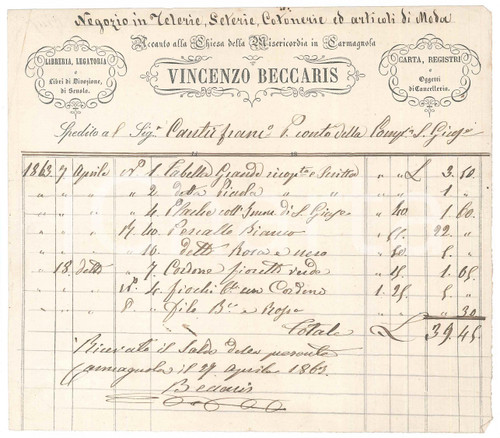 Negozio in Telerie, Seterie, Cotonerie ed articoli di Moda
Accanto alla Chiesa della Misericordia in Carmagnola
LIBRERIA, LEGATORIA
e
Libri di Divozione,
di Scuola.
VINCENZO BECCARIS
CARTA, REGISTRI
e
Oggetti
di Cancelleria.
Spedito al Sig.r conto della Comp.a S. Gius.e
1863 7 Aprile N.o 1 Tabella Grande Scritta " " L 3. 50
" " " 2 detta Picola " " 1 "
" " " 4 coll' di S. Gius.e " 40 1. 60
" " 40 Percallo Bianco " 55 22. "
" " " 10 detto Rosa e nero " 50 5. "
" 18 detto " 7 Cordone verde " 15 1. 05
" " N.o 4 fiochi un Cordone 1. 25 5. "
" " " 8 filo B.co e Rosso " " " 30
Totale L 39. 45
Ricevuto il Saldo della presente
Carmagnola il 27 Aprile 1863
Beccaris